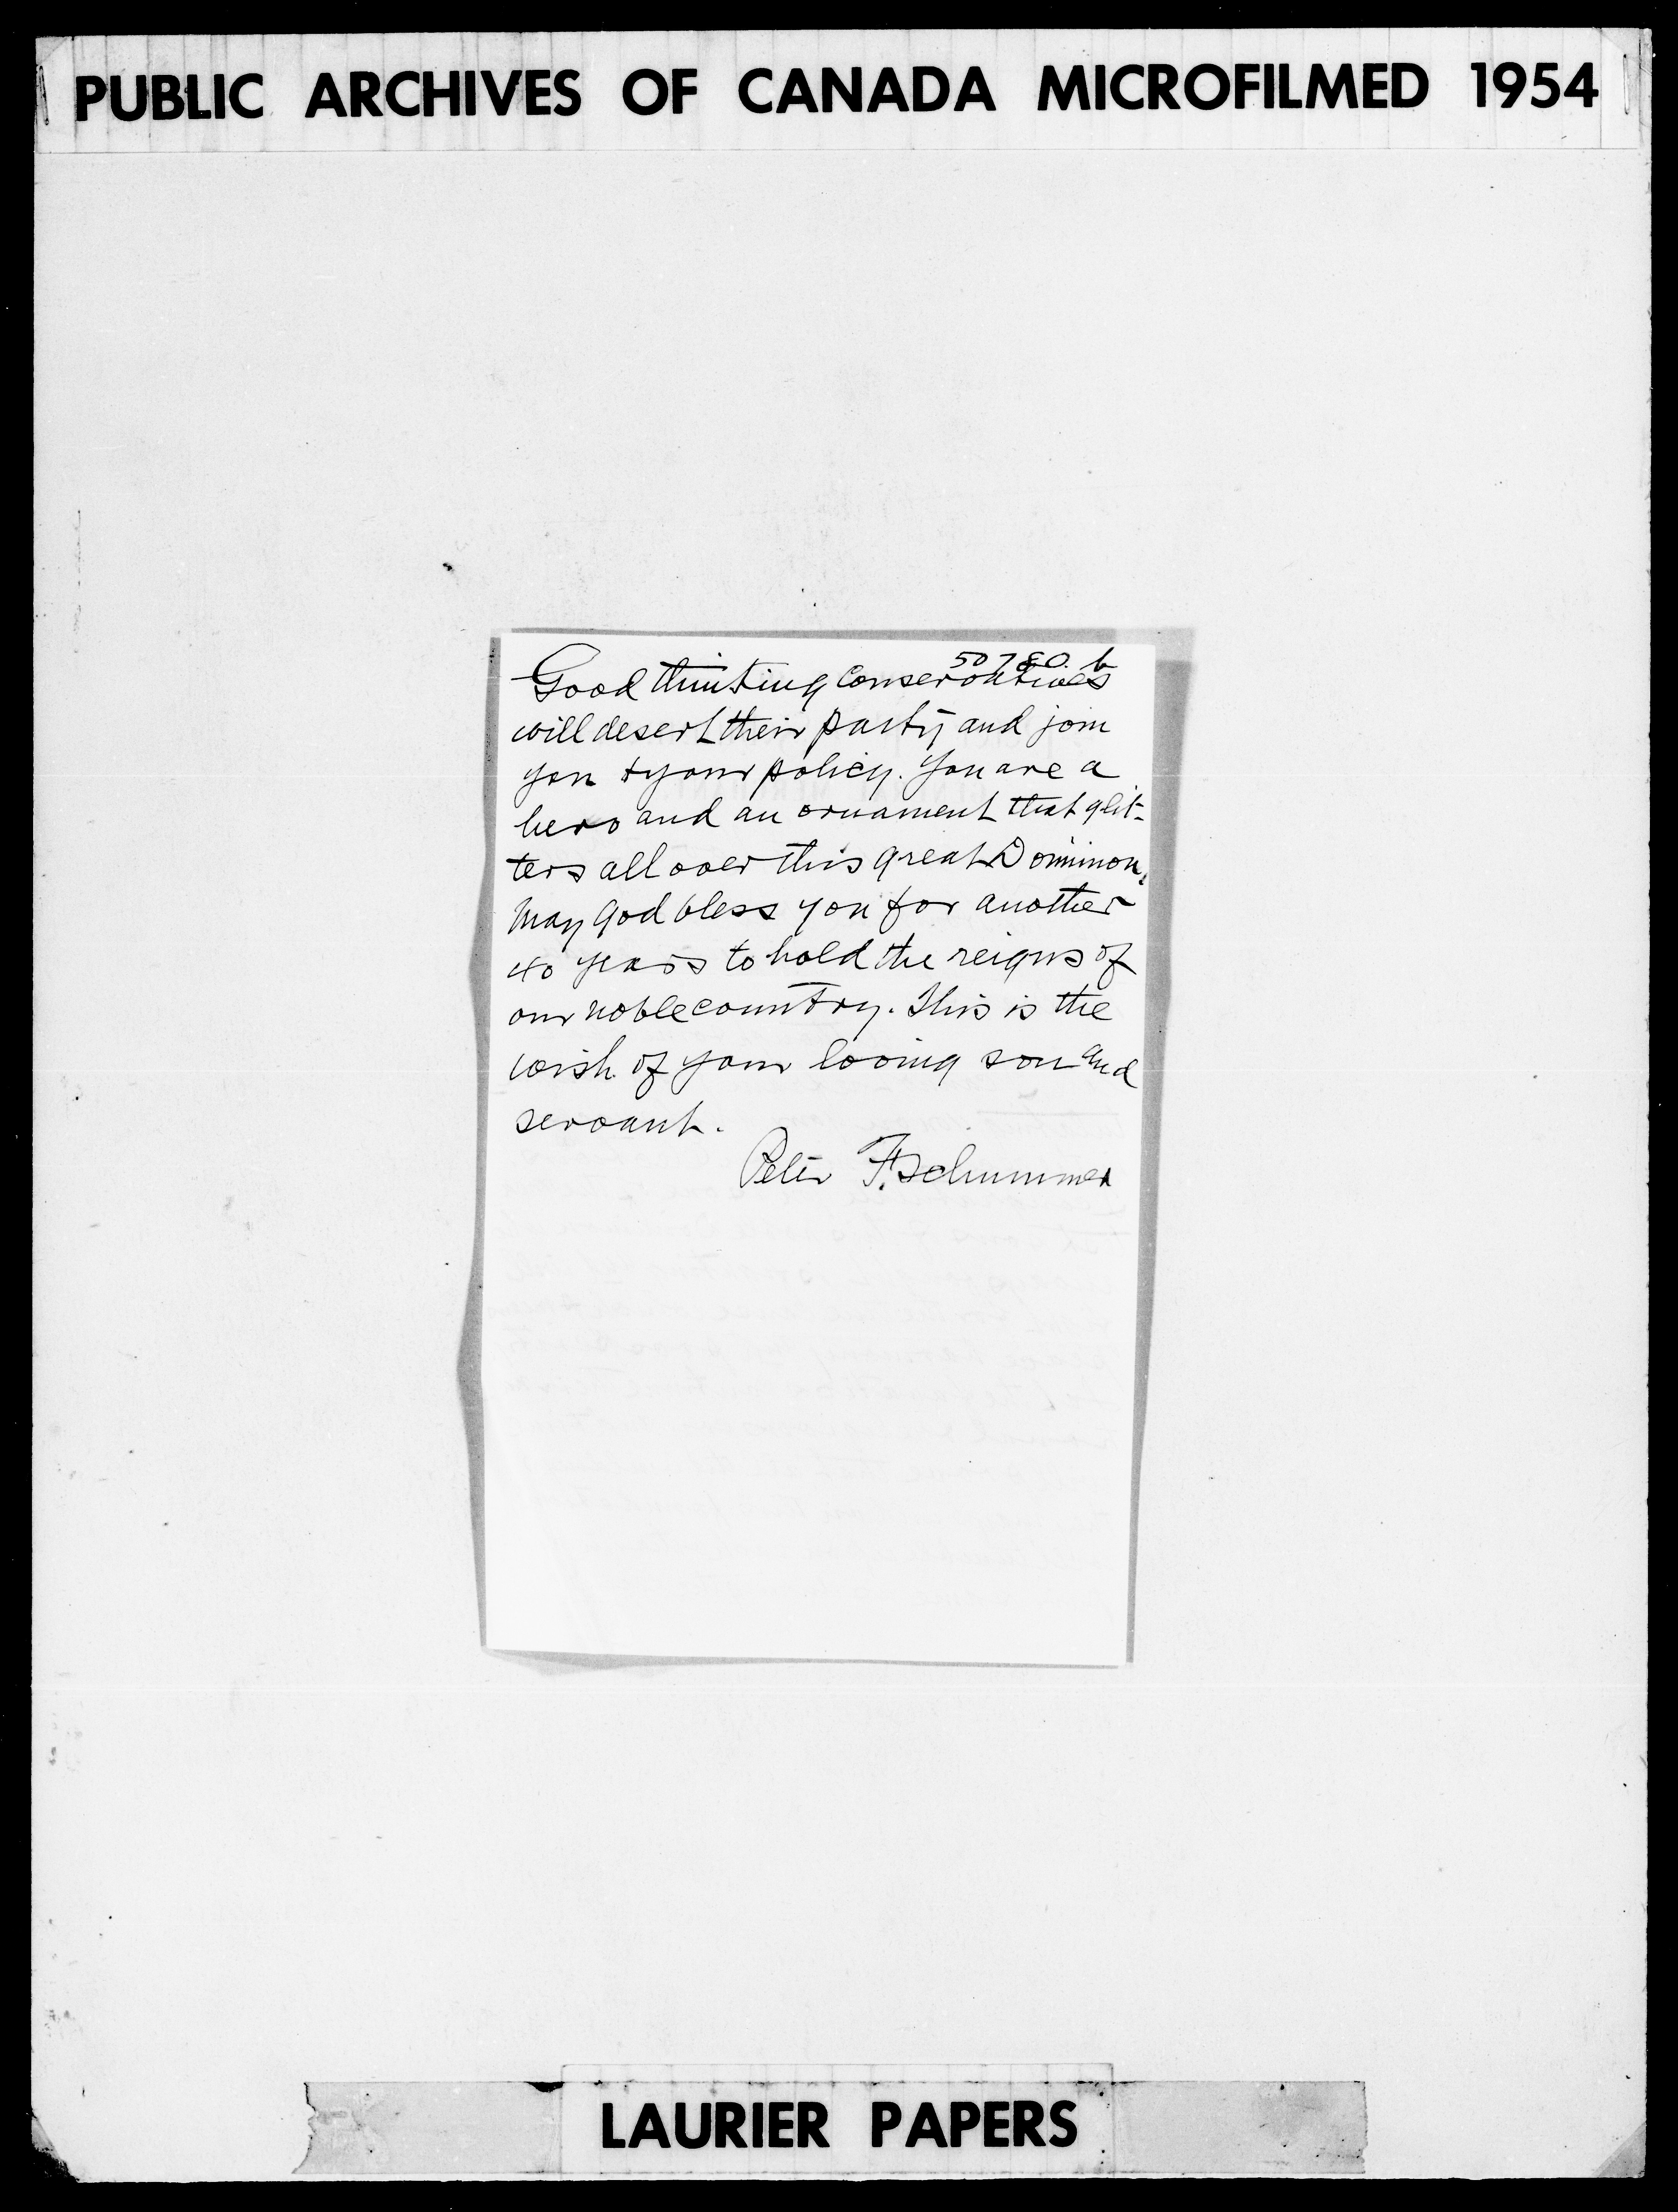 PUBLIC ARCHIVES OF CANADA MICROFILMED 1954
50780 b
Good thinking Conservatives
will desert their party and join
you + your policy. You are a
hero and an ornament that glit-
ters all over this great Dominion.
May God bless you for another
40 years to hold the reigns of
our noble country. This is the
wish of your loving son and
servant.
Peter F. Schummer
LAURIER PAPERS